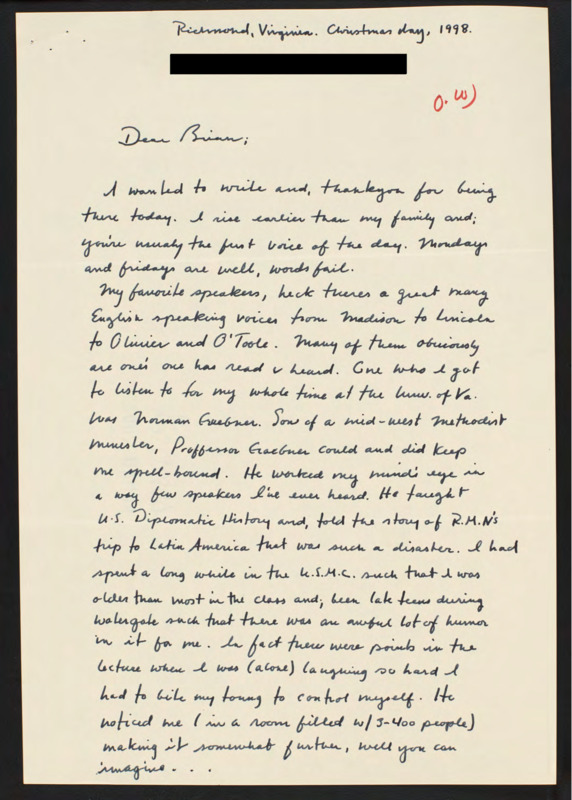 Richmond, Virginia. Christmas day, 1998.
O.W)
Dear Brian;
I wanted to write and, thankyou for being
there today. I rise earlier than my family and;
you're usualy the first voice of the day. Mondays
and fridays are well, words fail.
My favorite speakers, heck theres a great many
English speaking voices from Madison to Lincoln
to Olivier and O'Toole. Many of them obviously
are one's one has read v heard. One who I got
to listen to for my whole time at the Univ. of Va.
was Norman Graebner. Son of a mid-west methodist
minester, Proffessor Graebner could and did keep
me spell-bound. He worked my mind's eye in
a way few speakers I've ever heard. He taught
U.S. Diplomatic History and, told the story of R.M.N's
trip to Latin America that was such a disaster. I had
spent a long while in the U.S.M.C. such that I was
older than most in the class and; been late teens during
watergate such that there was an awful lot of humor
in it for me. In fact there were points in the
lecture when I was (alone) laughing so hard I
had to bite my toung to control myself. He
noticed me (in a room filled w/3-400 people)
making it somewhat further, well you can
imagine . . .